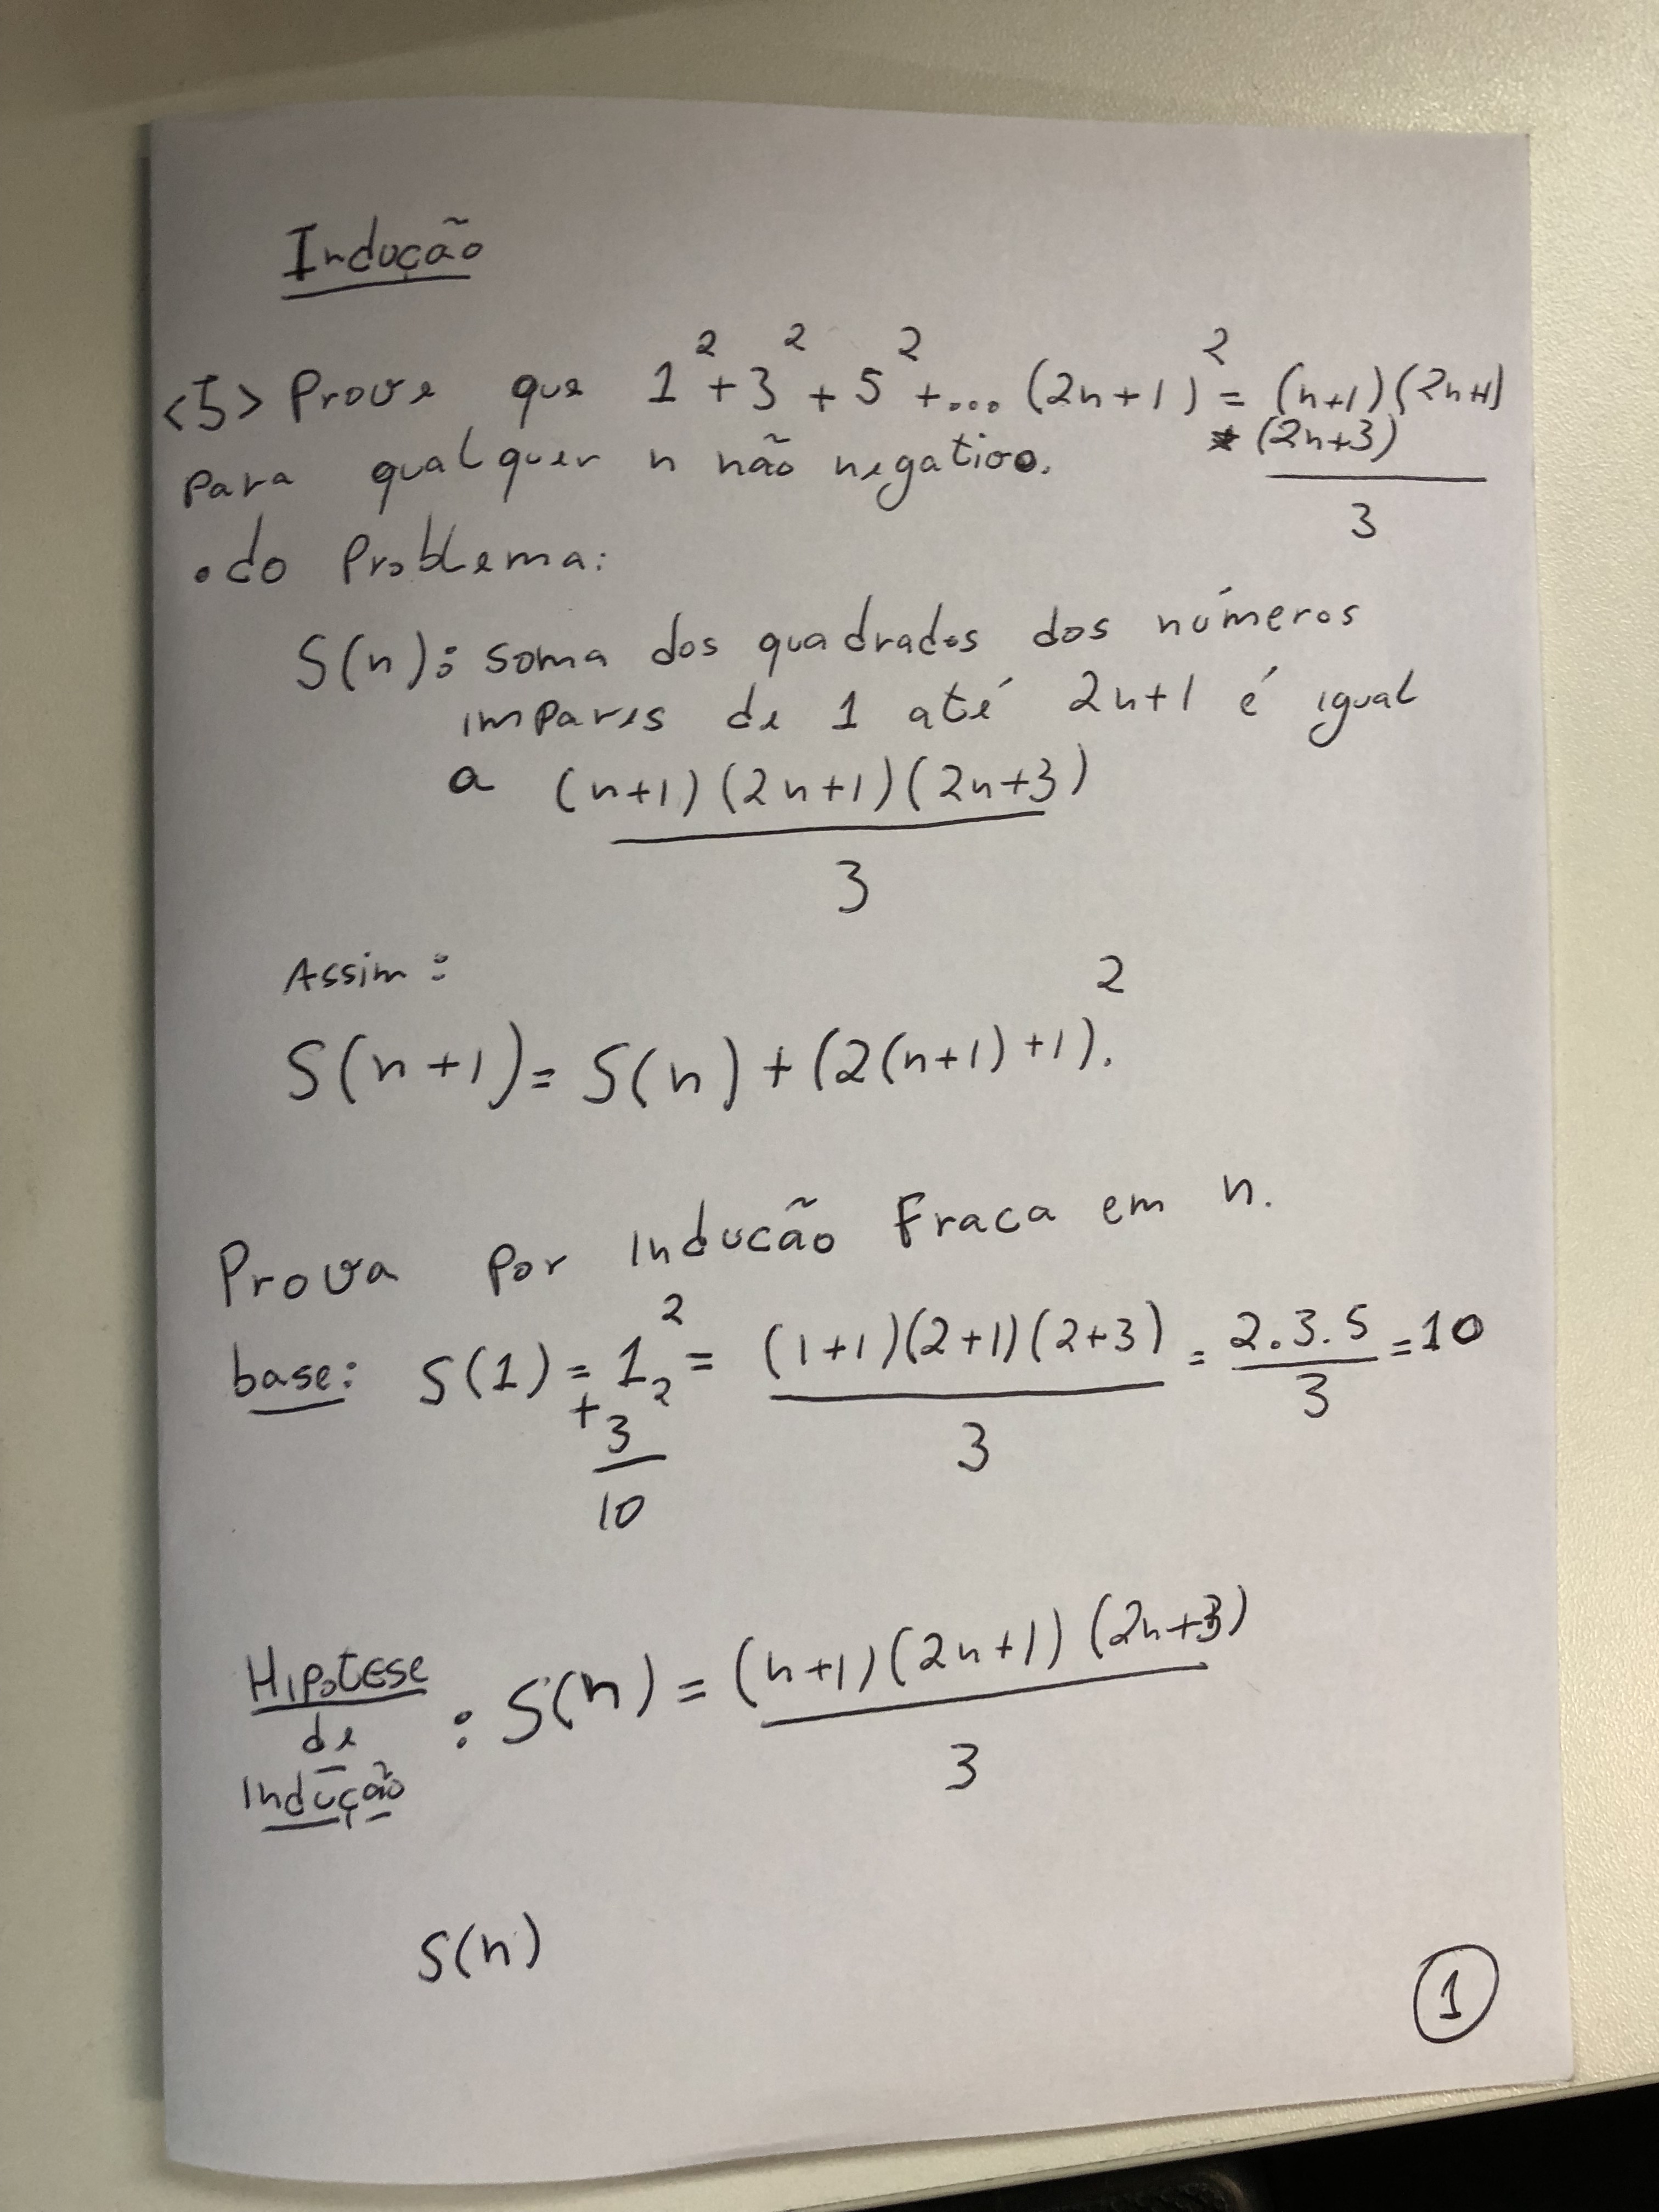 Indução
<5> Prove que 1² + 3² + 5² +... (2n+1)² = (n+1)(2n+1)
para qualquer n não negativo. * (2n+3)
3
• do Problema:
S(n): soma dos quadrados dos números
impares de 1 até 2n+1 é igual
a (n+1)(2n+1)(2n+3)
3
Assim:
S(n+1) = S(n) + (2(n+1)+1)².
Prova por inducão Fraca em n.
base: S(1) = 1² = (1+1)(2+1)(2+3) = 2.3.5 = 10
+ 3² 3 3
10
Hipotese
de : S(n) = (n+1)(2n+1)(2n+3)
Indução 3
S(n)
1